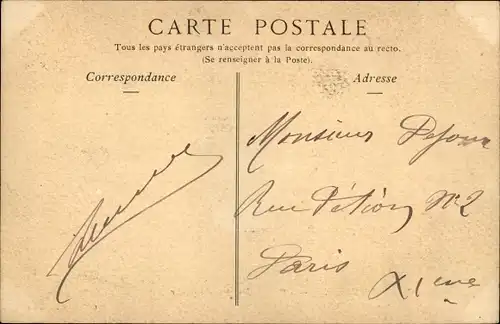 CARTE POSTALE
Tous les pays étrangers n'acceptent pas la correspondance au recto.
(Se renseigner à la Poste).
Correspondance
Adresse
Monsieur
Rue Pétion N° 2
Paris XIeme